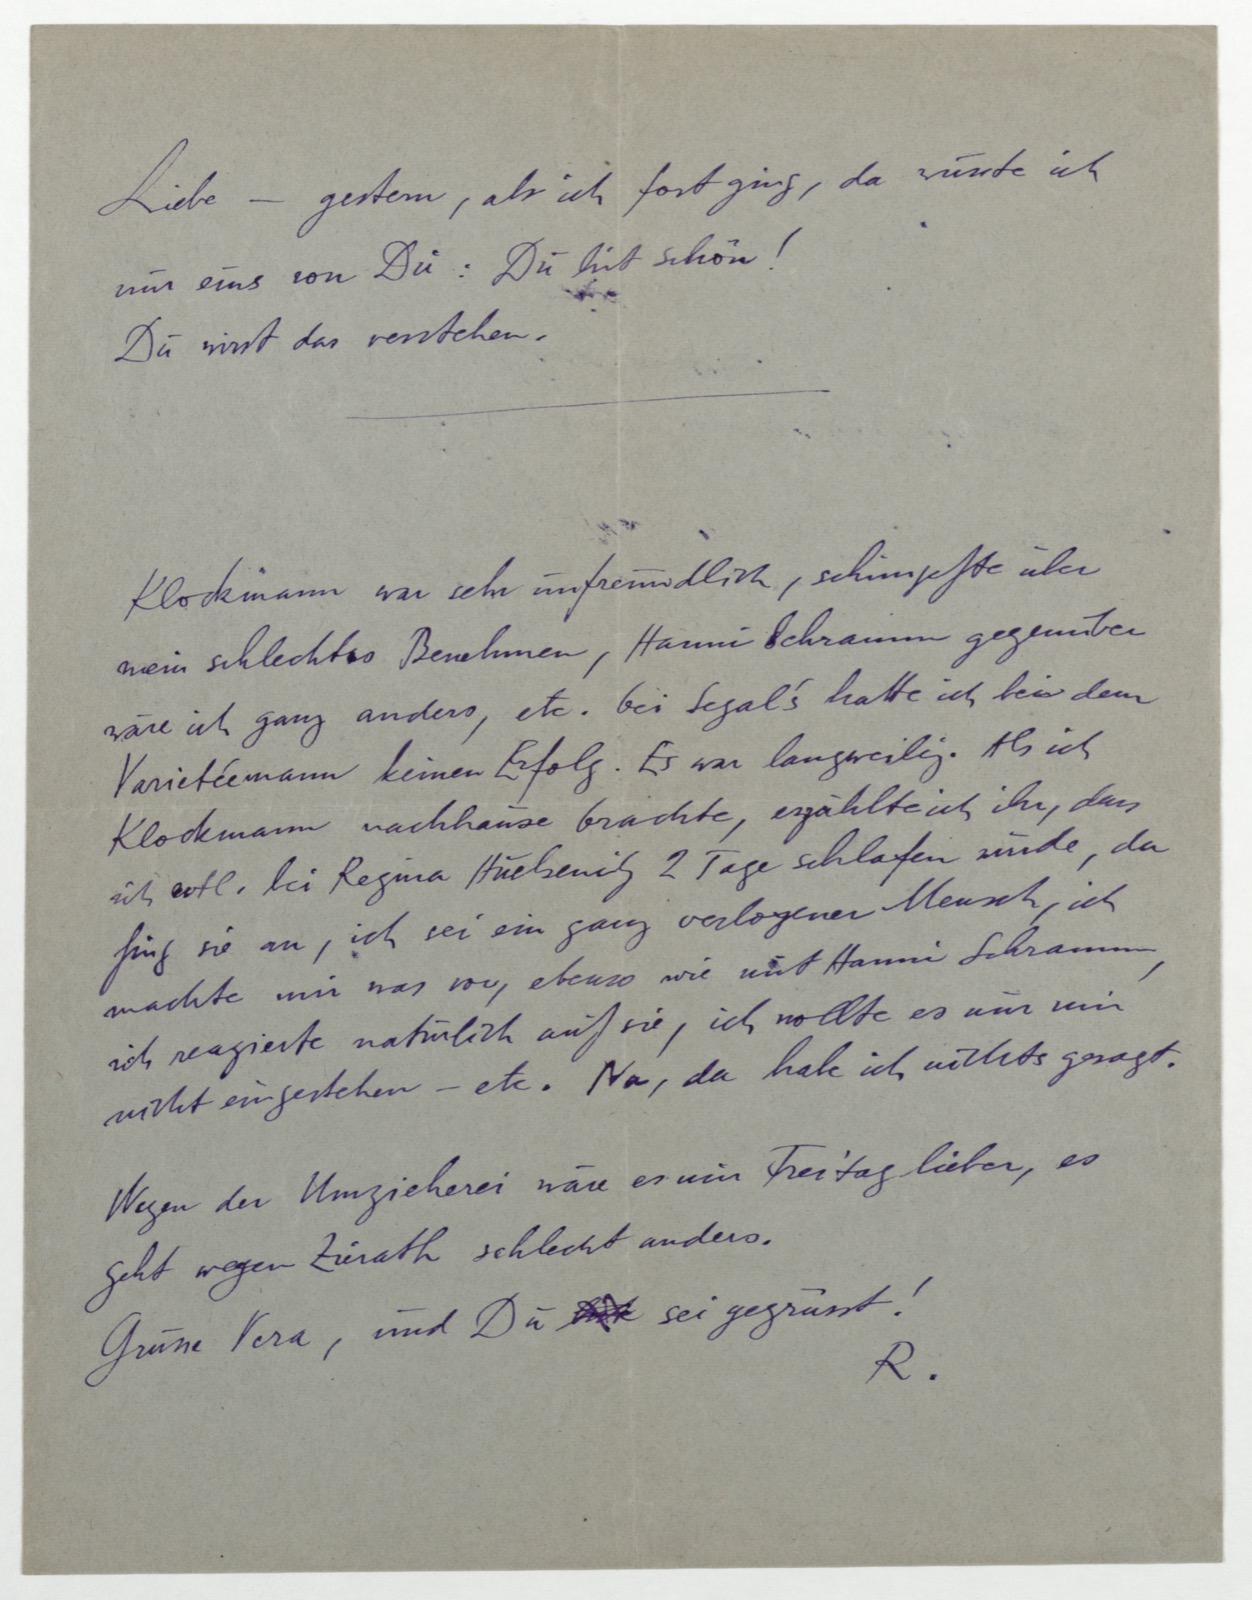 Liebe — gestern, als ich fort ging, da wusste ich
nur eins von Du: Du bist schön!
Du wirst das verstehen.
Klockmann war sehr unfreundlich, schimpfte über
mein schlechtes Benehmen, Hanni Schramm gegenüber
wäre ich ganz anders, etc. bei Segal's hatte ich bei dem
Varietéemann keinen Erfolg. Es war langweilig. Als ich
Klockmann nachhause brachte, erzählte ich ihr, dass
ich evtl. bei Regina 2 Tage schlafen würde, da
fing sie an, ich sei ein ganz verlogener Mensch, ich
machte mir was vor, ebenso wie mit Hanni Schramm,
ich reagierte natürlich auf sie, ich wollte es nur mir
nicht eingestehen — etc. Na, da habe ich nichts gesagt.
Wegen der Umzieherei wäre es mir Freitag lieber, es
geht wegen Zierath schlecht anders.
Grüsse Vera, und Du sei gegrüsst!
R.